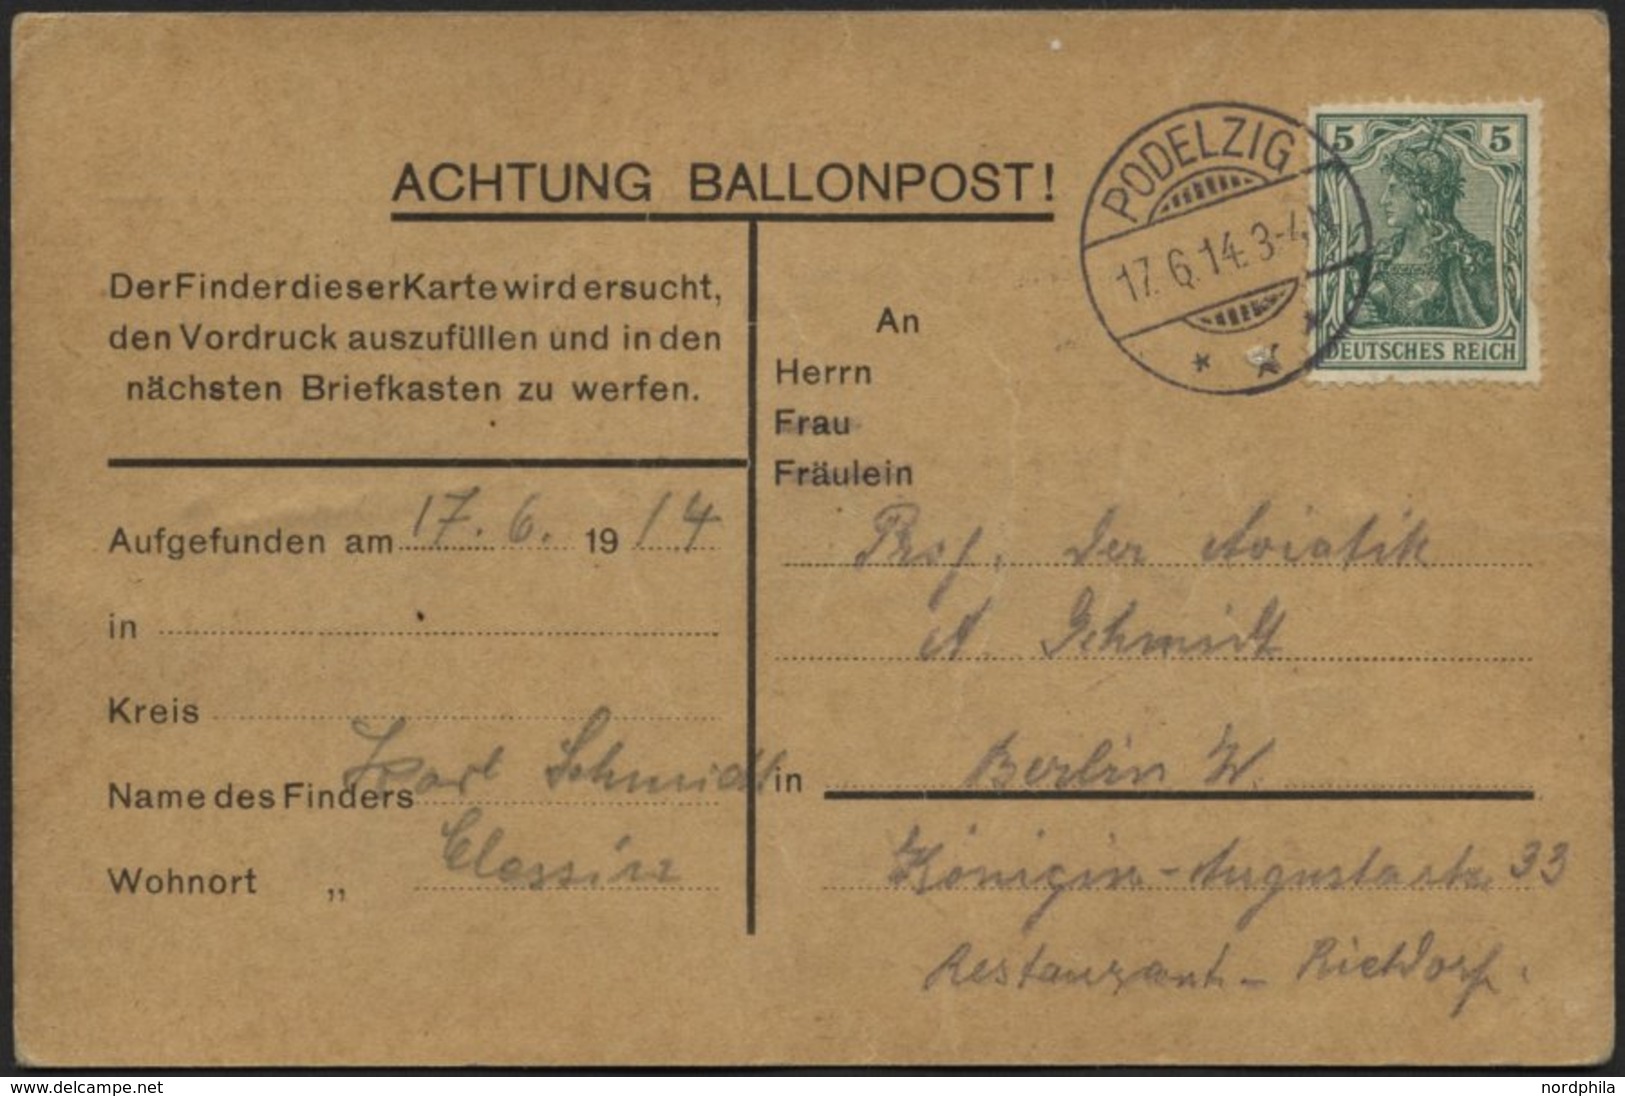 ACHTUNG BALLONPOST!
PODELZIG
17.6.14.3-4.N
5 5
DEUTSCHES REICH
Der Finder dieser Karte wird ersucht,
den Vordruck auszufüllen und in den
nächsten Briefkasten zu werfen.
Aufgefunden am 17. 6. 19 14
in
Kreis
Name des Finders Karl Schmidt
Wohnort „ Clessin
An
Herrn
Frau
Fräulein
Prof. der Aviatik
A. Schmidt
in Berlin W.
Königin-Augustastr. 33
Restaurant - Rietdorf.
www.delcampe.net
nordphila